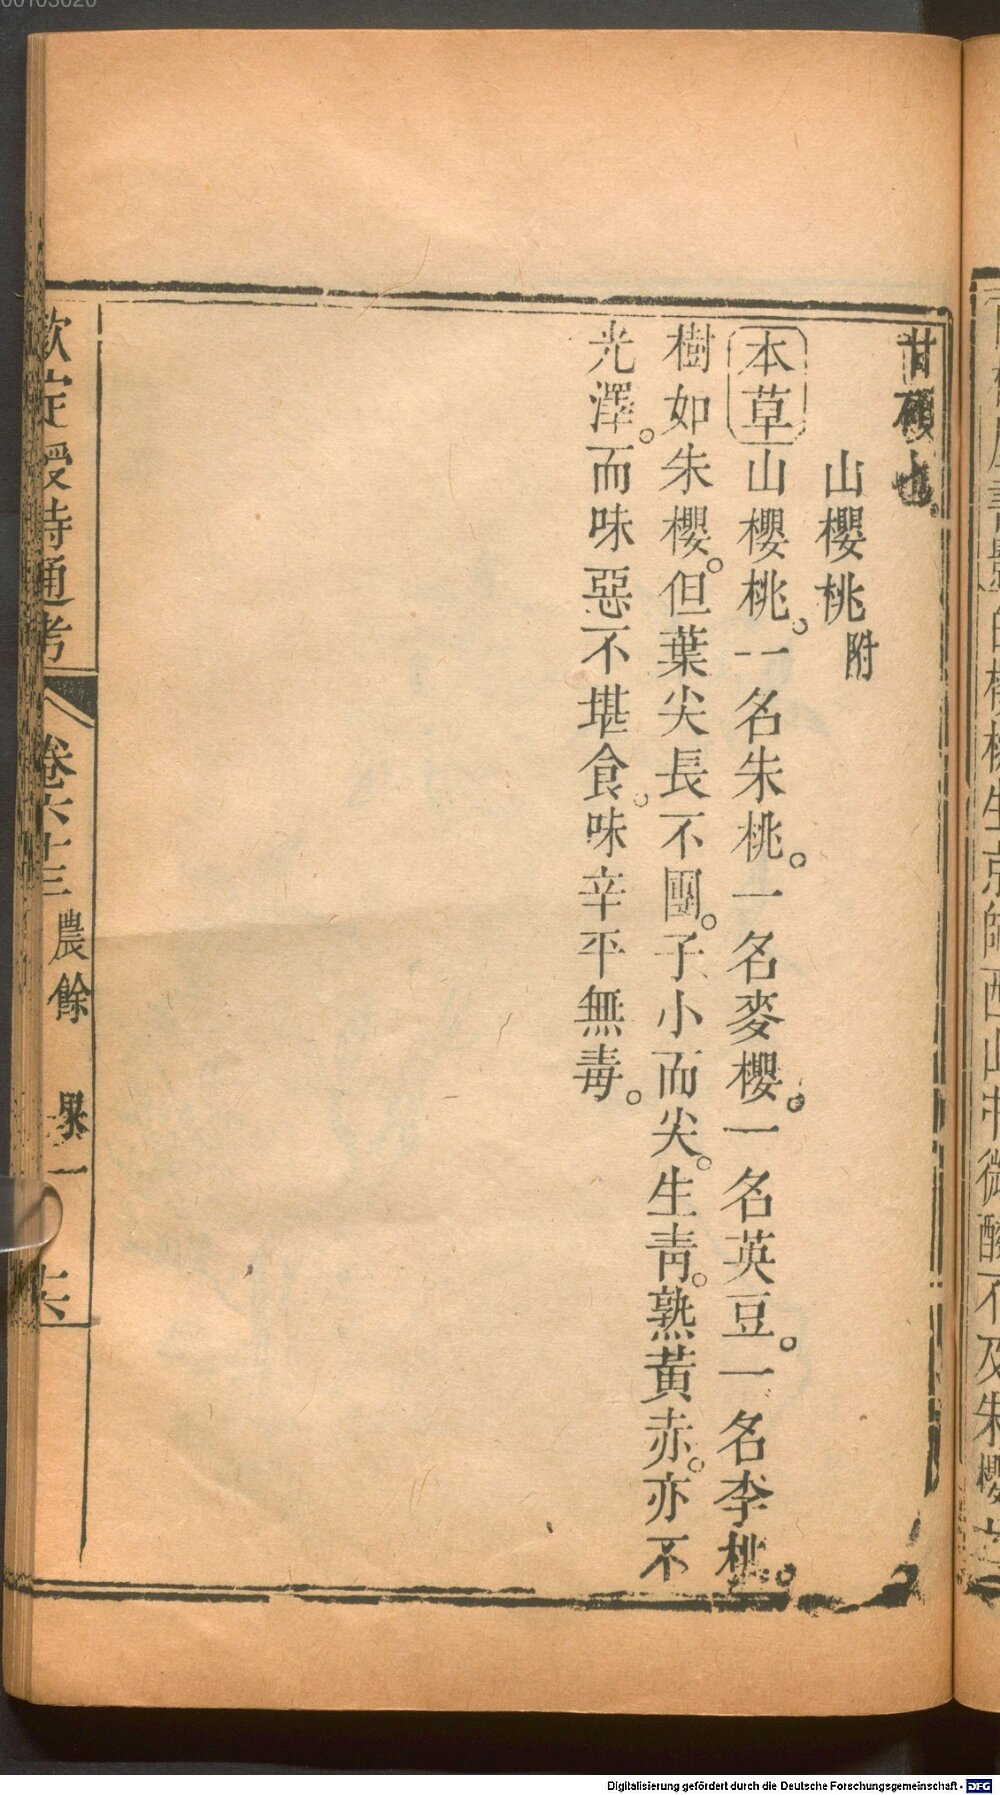 甘碩也
山櫻桃附
本草山櫻桃。一名朱桃。一名麥櫻。一名英豆。一名李桃。
樹如朱櫻。但葉尖長不團。子小而尖。生靑。熟黃赤。亦不
光澤。而味惡不堪食。味辛平無毒。
欽定授時通考 卷六十三 農餘 果一
Digitalisierung gefördert durch die Deutsche Forschungsgemeinschaft - DFG